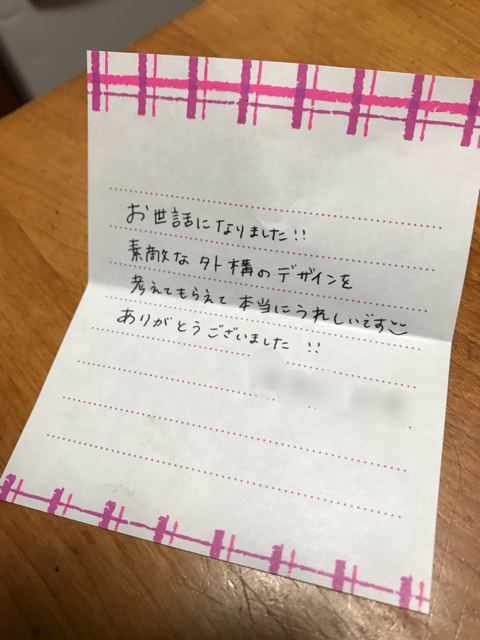 お世話になりました!!
素敵な外構のデザインを
考えてもらえて本当にうれしいです
ありがとうございました!!